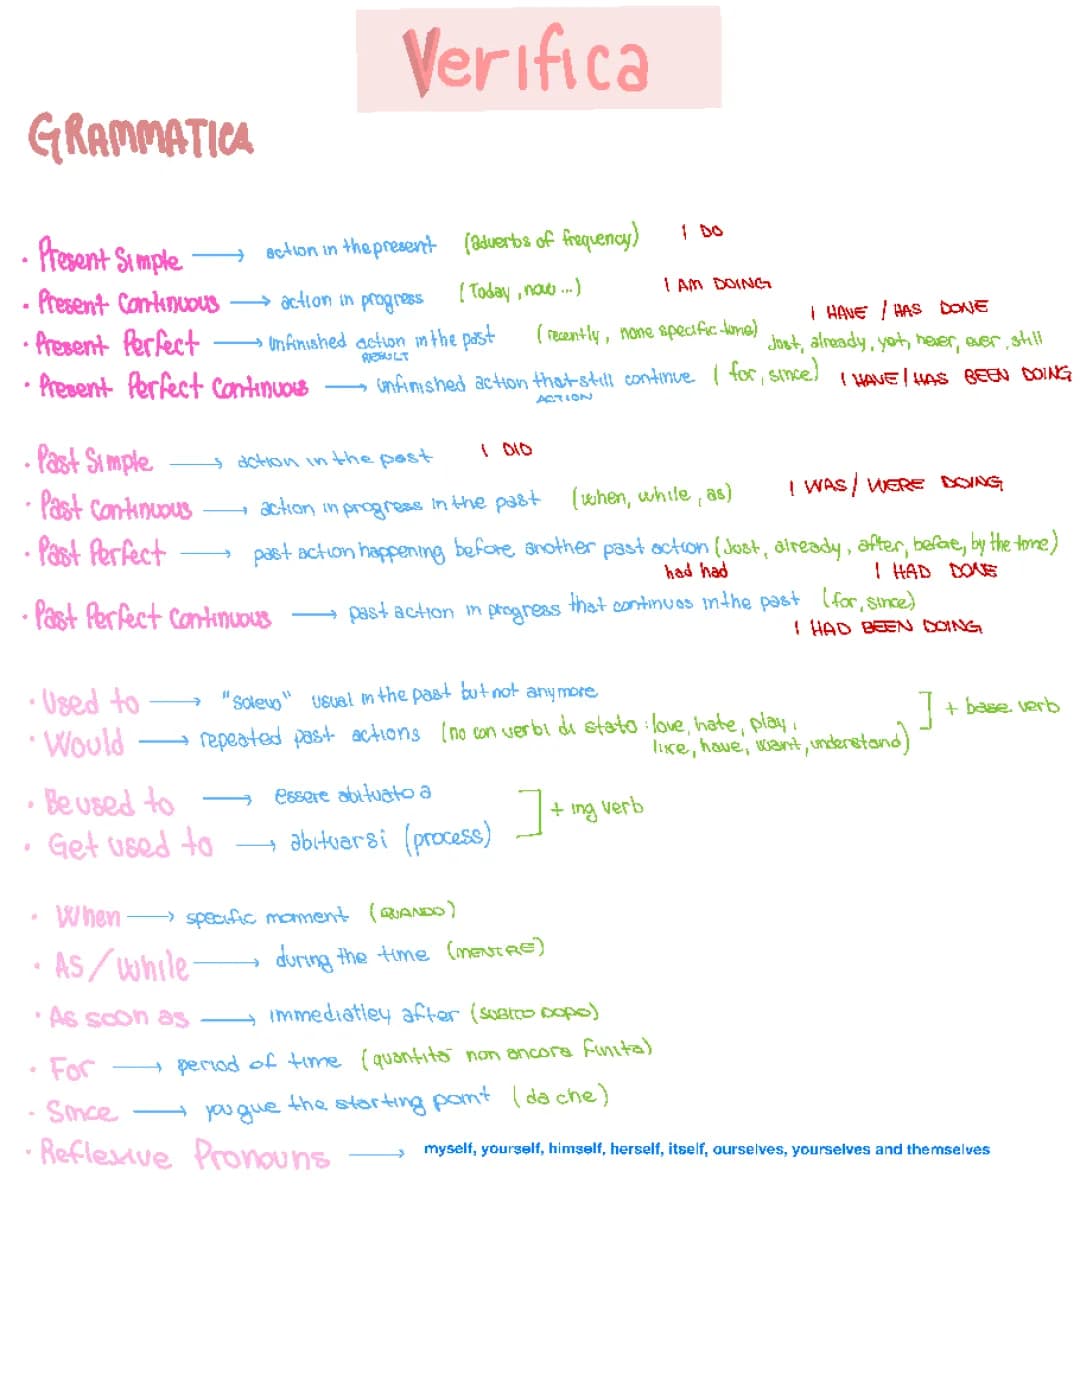 Verifica
GRAMMATICA
• Present Simple → action in the present (adverbs of frequency) I DO
• Present Continuous → action in progress (Today, now ...) I AM DOING
I HAVE / HAS DONE
• Present Perfect → Unfinished action in the past (recently, none specific time) Just, already, yet, never, ever, still
RESULT
• Present Perfect Continuous → unfinished action that still continue (for, since) I HAVE / HAS BEEN DOING
ACTION
• Past Simple → action in the past I DID
• Past Continuous → action in progress in the past (when, while, as) I WAS / WERE DOING
• Past Perfect → past action happening before another past action (Just, already, after, before, by the time)
had had I HAD DONE
• Past Perfect Continuous → past action in progress that continues in the past (for, since)
I HAD BEEN DOING
• Used to → "Solevo" usual in the past but not anymore
• Would → repeated past actions (no con verbi di stato : love, hate, play, ] + base verb
like, have, want, understand)
• Be used to → essere abituato a
• Get used to → abituarsi (process) ] + ing verb
• When → specific moment (QUANDO)
• As / while → during the time (MENTRE)
• As soon as → immediatley after (SUBITO DOPO)
• For → period of time (quantità non ancora finita)
• Since → you give the starting point (da che)
• Reflexive Pronouns → myself, yourself, himself, herself, itself, ourselves, yourselves and themselves